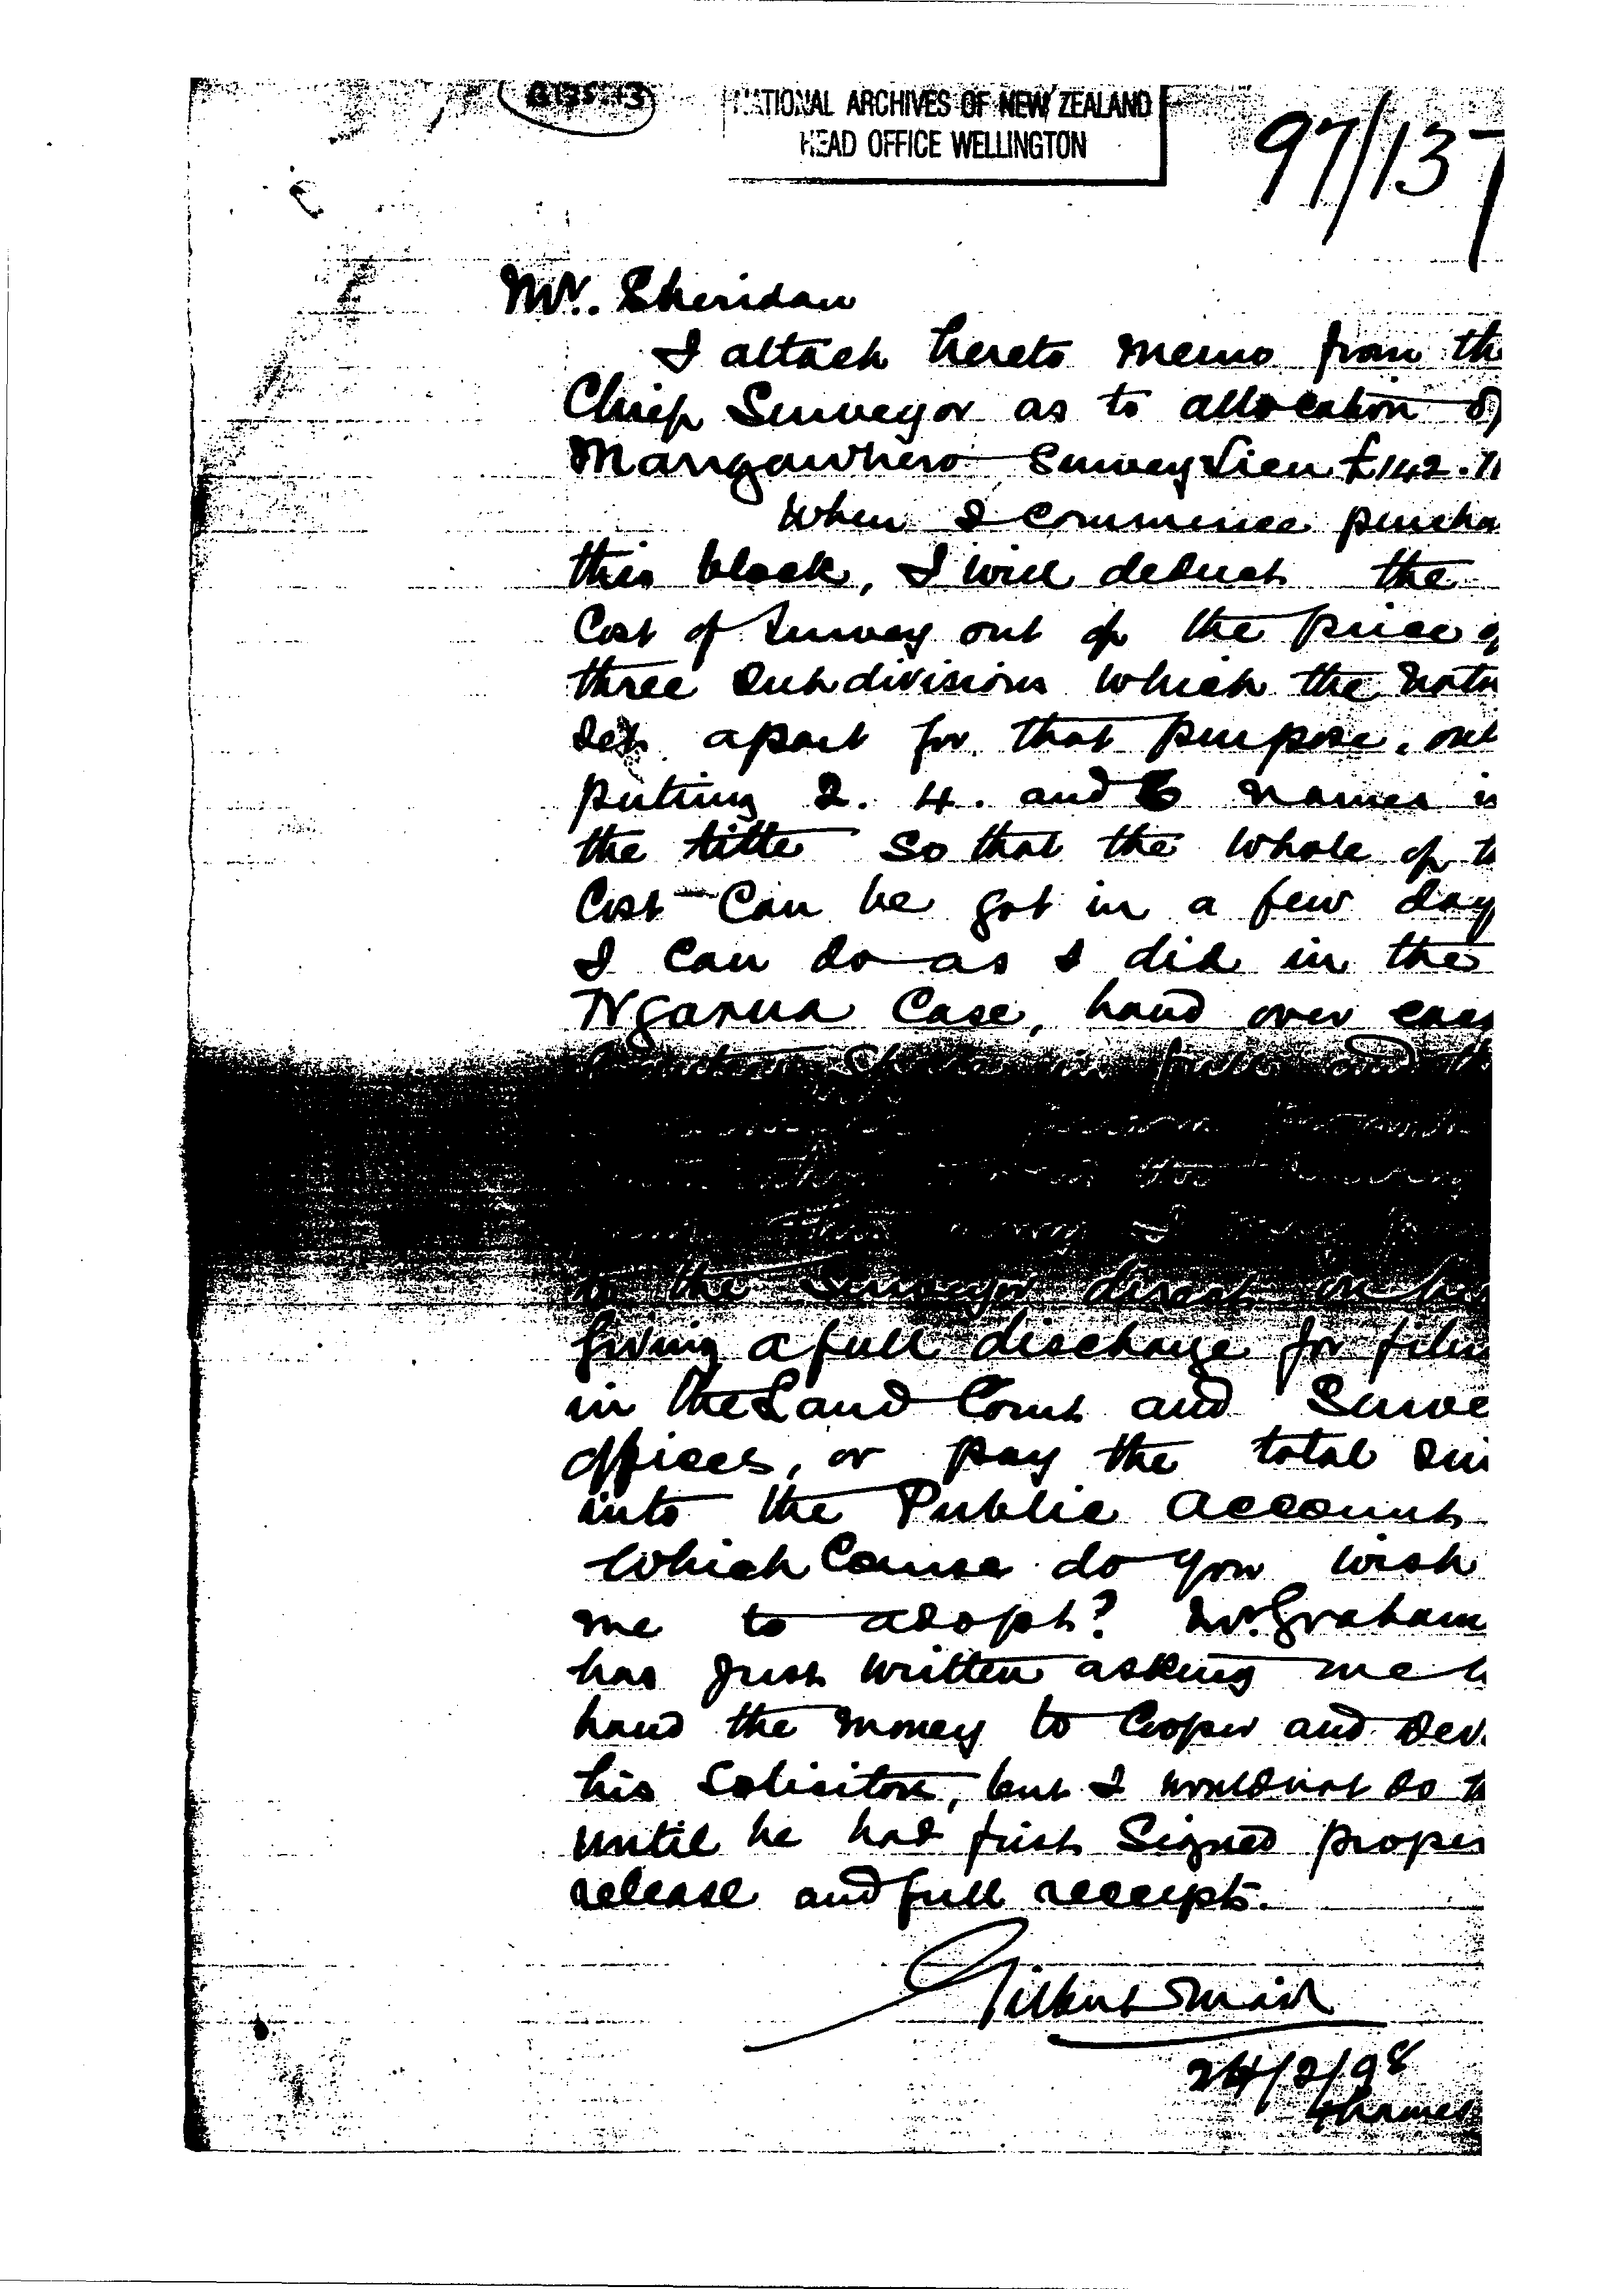 NATIONAL ARCHIVES OF NEW ZEALAND
HEAD OFFICE WELLINGTON
97/137
Mr. Sheridan
I attach hereto memo from th
Chief Surveyor as to allocation of
Mangawhero Survey Lien £142.11
When I commence purcha
this block, I will deduct the
Cost of Survey out of the price of
three Subdivisions which the nativ
set apart for that purpose, only
putting 2. 4. and 6 names in
the title so that the whole of th
Cost Can be got in a few day
I can do as I did in the
Ngarua Case, hand over
in full and th
to the Surveyor direct on his
giving a full discharge for filin
in the Land Court and Surve
offices, or pay the total su
into the Public Account
Which Course do you wish
me to adopt? Mr. Graham
has just written asking me t
hand the money to Cooper and Dev.
his Solicitors, but I would not do t
until he had first Signed proper
release and full receipts.
Gilbert Mair
24/2/98
Thames